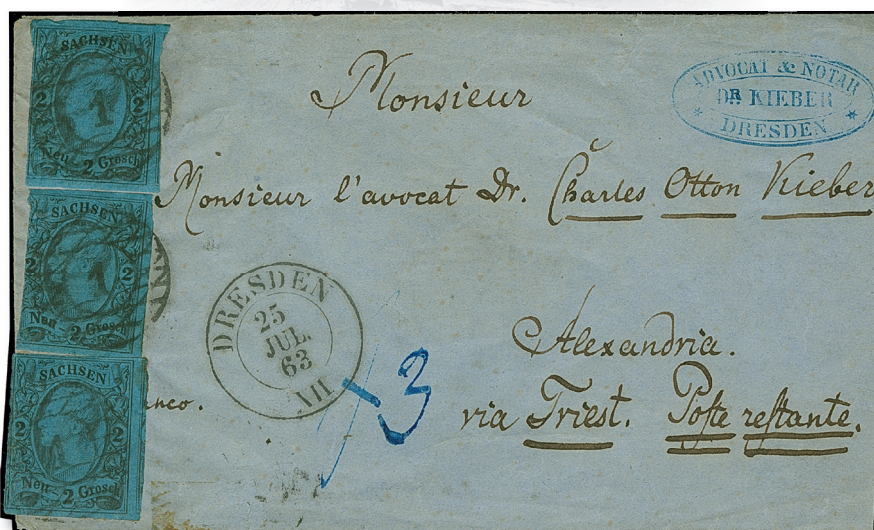 SACHSEN
2 1 2
Neu - 2 Grosch
SACHSEN
2 1 2
Neu - 2 Grosch
SACHSEN
2 2
Neu - 2 Grosch
ADVOCAT & NOTAR
DR KIEBER
* DRESDEN *
Monsieur
Monsieur l'avocat Dr. Charles Otton Kieber
DRESDEN
25
JUL.
63
XII
3
Alexandria.
via Triest. Poste restante.
nco.